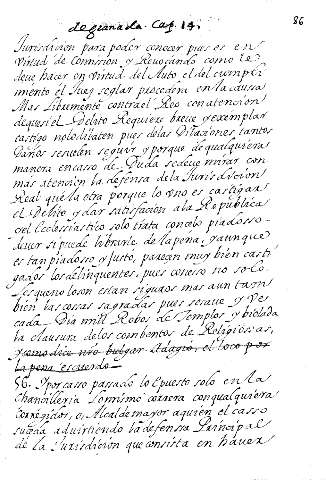 de granada. Cap. 14.
86
Jurisdicion para poder conocer pues es en
virtud de Comision, y Revocando como le
deve hacer en virtud del Auto, el del cumpli-
miento el Juez seglar procedera en la causa
Mas libremente contra el Reo con atencion
de que si el Delito Requiere breve y exemplar
castigo no le dilaten pues de las Dilaciones tantos
daños se suelen seguir y porque de qualquiera
manera en casso de Duda se deve mirar con
mas atencion la defensa de la Jurisdicion
Real que la otra porque lo uno es castigar
el Delito, y dar satisfacion a la Republica
i el Ecclesiastico solo trata con celo piadoso
de ver si puede librarle de la pena, y aunque
es tan piadoso y justo, parecen muy bien casti-
gados los delinquentes, pues con eso no solo
los que lo son estan siguros mas aun tam
bien las cossas sagradas pues se save y
cada Dia mill Robos de Templos y biolada
la clausura de los combentos de Religiosas,
y como dice nro bulgar Adagio, el loco por
la pena es cuerdo
56. Y por casso passado lo Puesto solo en la
Chancilleria lo mismo correra con qualquiera
Corregidor, o Alcalde mayor a quien el casso
suceda advirtiendo la defensa Principal
de la Jurisdicion que consista en haver